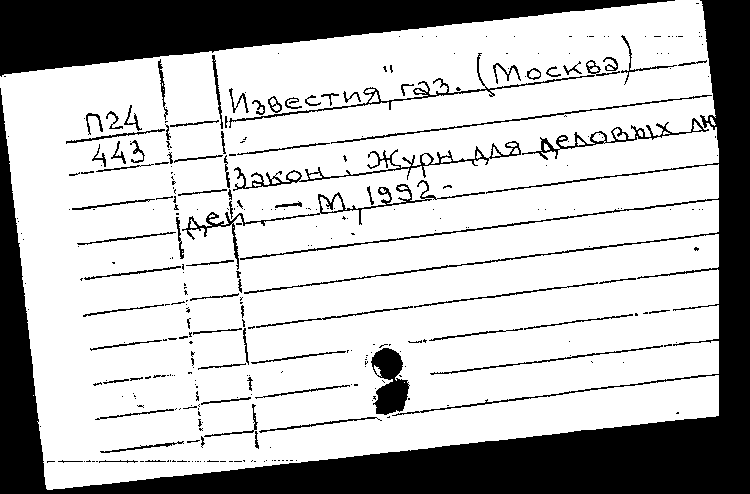 „Известия", газ. (Москва)
П24
443
Закон : Журн. для деловых лю
дей. — М., 1992 -